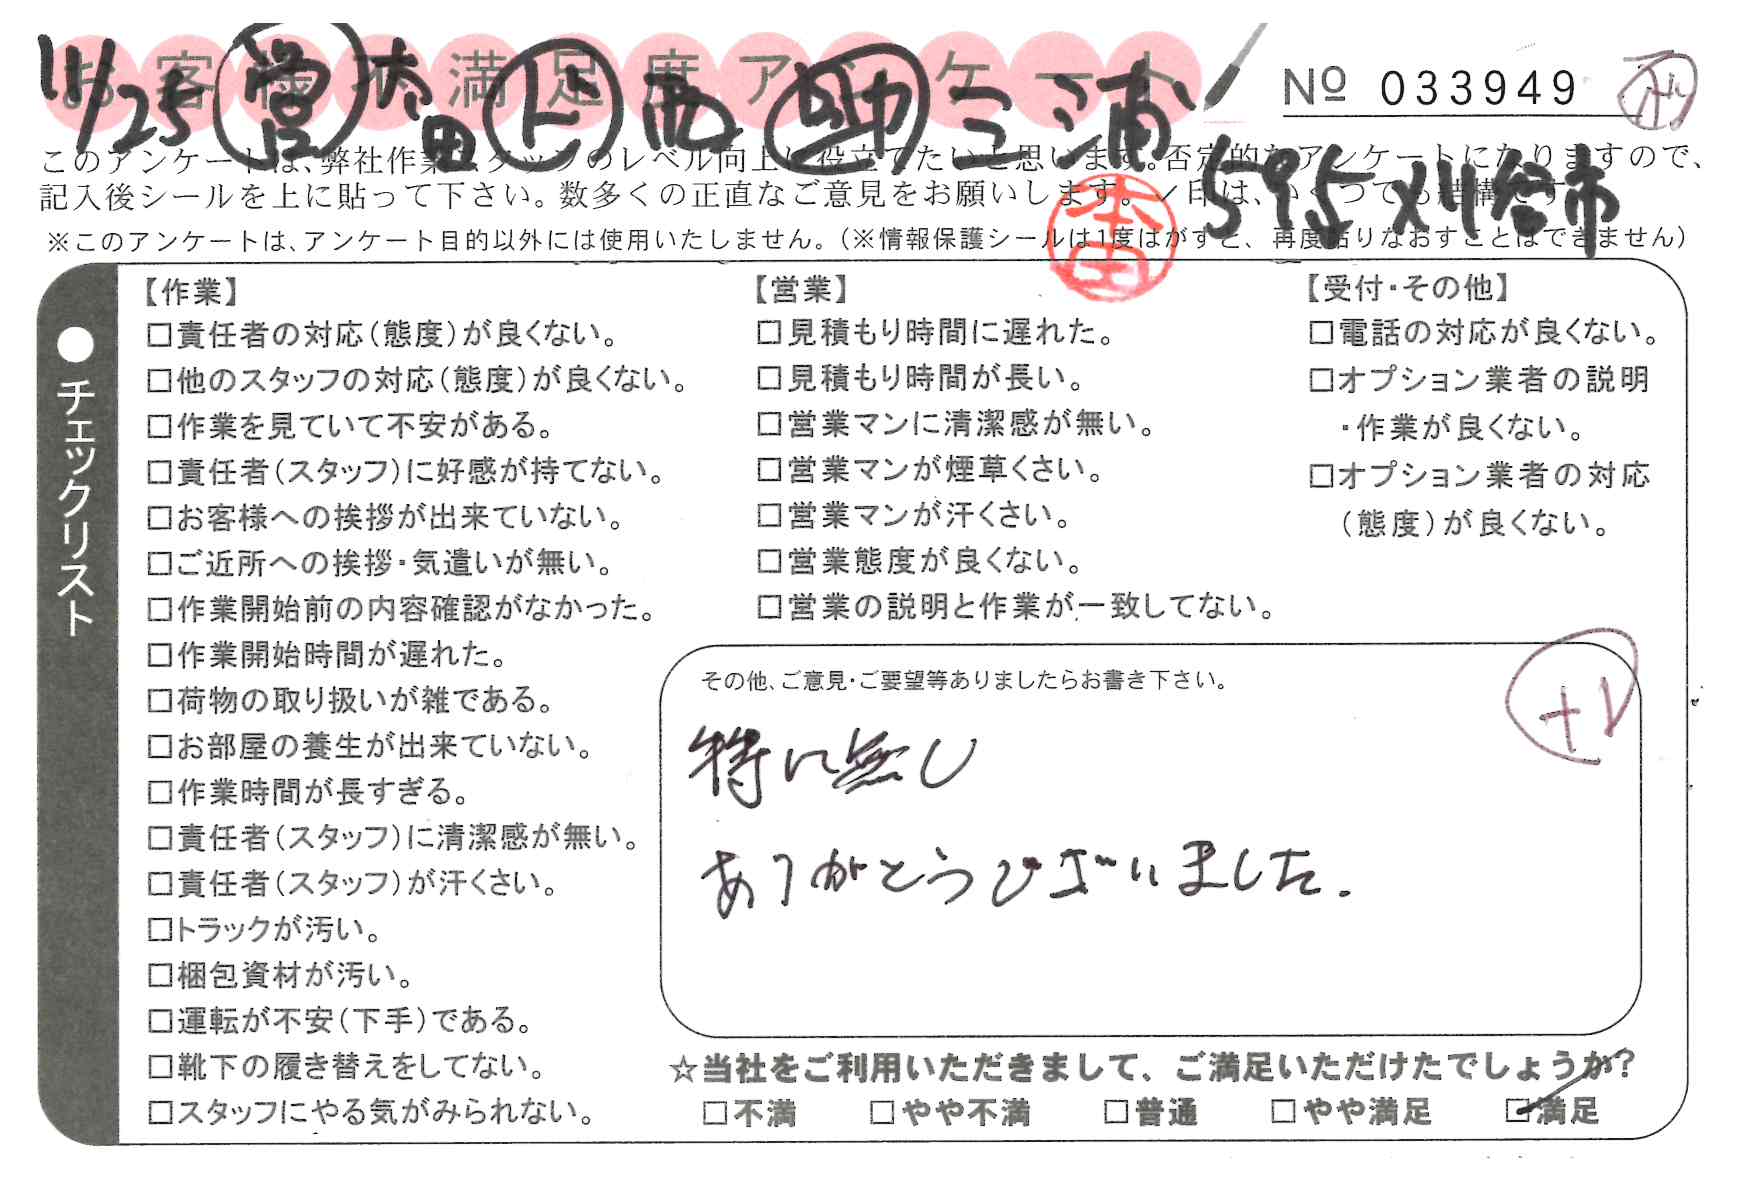 お客様不満足度アンケート
11/25 営 本田 ト 西 助 三浦
№ 033949
このアンケートは、弊社作業スタッフのレベル向上に役立てたいと思います。否定的なアンケートになりますので、
記入後シールを上に貼って下さい。数多くの正直なご意見をお願いします。✓印は、いくつでも結構です
595 刈谷市
本田
※このアンケートは、アンケート目的以外には使用いたしません。(※情報保護シールは1度はがすと、再度貼りなおすことはできません)
●チェックリスト
【作業】
□責任者の対応(態度)が良くない。
□他のスタッフの対応(態度)が良くない。
□作業を見ていて不安がある。
□責任者(スタッフ)に好感が持てない。
□お客様への挨拶が出来ていない。
□ご近所への挨拶・気遣いが無い。
□作業開始前の内容確認がなかった。
□作業開始時間が遅れた。
□荷物の取り扱いが雑である。
□お部屋の養生が出来ていない。
□作業時間が長すぎる。
□責任者(スタッフ)に清潔感が無い。
□責任者(スタッフ)が汗くさい。
□トラックが汚い。
□梱包資材が汚い。
□運転が不安(下手)である。
□靴下の履き替えをしてない。
□スタッフにやる気がみられない。
【営業】
□見積もり時間に遅れた。
□見積もり時間が長い。
□営業マンに清潔感が無い。
□営業マンが煙草くさい。
□営業マンが汗くさい。
□営業態度が良くない。
□営業の説明と作業が一致してない。
【受付・その他】
□電話の対応が良くない。
□オプション業者の説明
・作業が良くない。
□オプション業者の対応
(態度)が良くない。
その他、ご意見・ご要望等ありましたらお書き下さい。
+1
特に無し
ありがとうございました.
☆当社をご利用いただきまして、ご満足いただけたでしょうか?
□不満 □やや不満 □普通 □やや満足 ☑満足